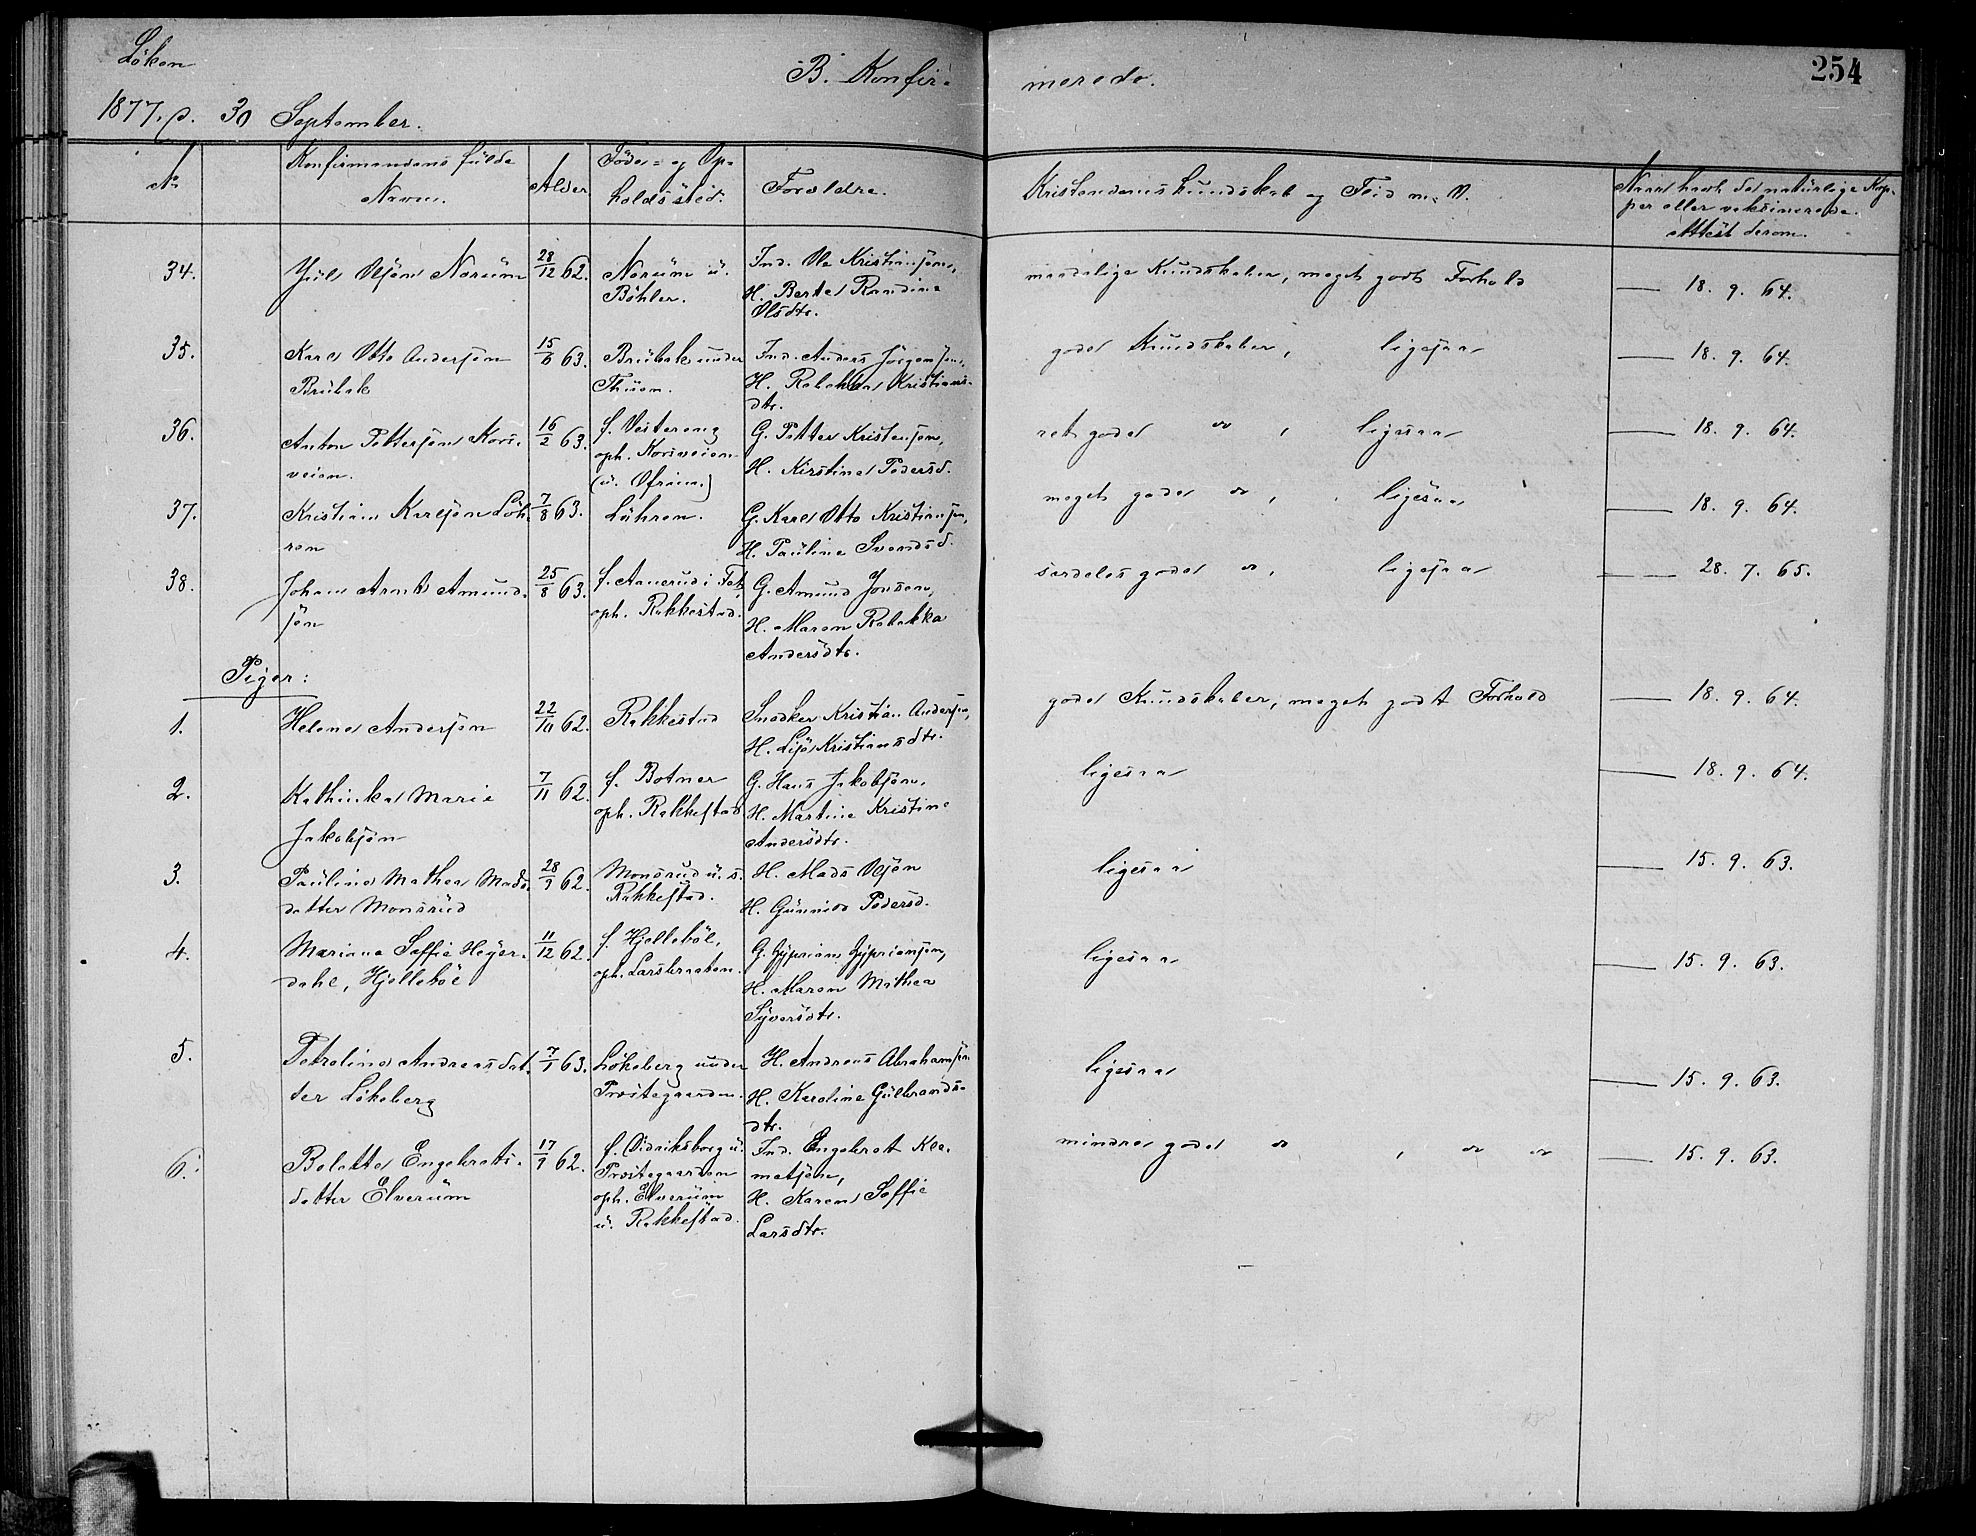 Löken
B. Konfir-
merede.
254
1877. d. 30 September.
No
Konfirmandens fulde
Navn.
Alder
Föde- og Op-
holdssted.
Forældre.
Kristendomskundskab og Flid m. V.
Naar havt de naturlige Kop-
per eller vaksinerede.
Attest derom.
34.
Juls Olsen Norum
28/12 62.
Norum u.
Böhler.
Ind. Ole Kristiansen,
H. Berte Randine
Olsdtr.
maadelige Kundskaber, meget godt Forhold
18. 9. 64.
35.
Karl Otto Andersen
Brubak
15/6 63.
Brubak under
Thuen.
Ind. Anders Jörgensen,
H. Rebekka Kristians-
dtr.
gode Kundskaber, ligesaa
18. 9. 64.
36.
Anton Pettersen Kors-
veien.
16/2 63.
f. Vestereng
oph. Korsveien
(u. Ofrim.)
G. Petter Kristensen,
H. Kirstine Pedersd.
ret gode do, ligesaa
18. 9. 64.
37.
Kristian Karlsen Löh-
ren
7/8 63.
Löhren.
G. Karl Otto Kristiansen,
H. Pauline Svendsd.
meget gode do, ligesaa
18. 9. 64.
38.
Johan Arnt Amund-
sen
25/8 63.
f. Aanerud i Fet,
oph. Rakkestad.
G. Amund Jonsen,
H. Maren Rebekka
Andersdtr.
særdeles gode do, ligesaa
28. 7. 65.
Piger:
1.
Helene Andersen
22/10 62.
Rakkestad
Snedker Kristian Andersen,
H. Lise Kristiansdtr.
gode Kundskaber, meget godt Forhold
18. 9. 64.
2.
Kathinka Marie
Jakobsen
7/11 62.
f. Botner
oph. Rakkestad
G. Hans Jakobsen,
H. Martine Kristine
Andersdtr.
ligesaa
18. 9. 64.
3.
Pauline Mathea Mads-
datter Monsrud
28/9 62.
Monsrud u. s.
Rakkestad.
H. Mads Olsen
H. Gunnild Pedersd.
ligesaa
15. 9. 63.
4.
Mariane Soffie Heyer-
dahl, Hjelleböl
11/12 62.
f. Hjelleböl,
oph. Larsbraaten.
G. Zyprian Zypriansen,
H. Maren Mathea
Syversdtr.
ligesaa
15. 9. 63.
5.
Petroline Andreasdat-
ter Lökeberg
7/1 63.
Lökeberg under
Prestegaarden.
H. Andreas Abrahamsen
H. Karoline Gulbrands-
dtr.
ligesaa
15. 9. 63.
6.
Bolette Engebrets-
datter Elverum
17/9 62.
f. Didriksborg u.
Prestegaarden
oph. Elverum
u. Rakkestad.
Ind. Engebret Kle-
metsen,
H. Karen Soffie
Larsdtr.
mindre gode do, do do
15. 9. 63.